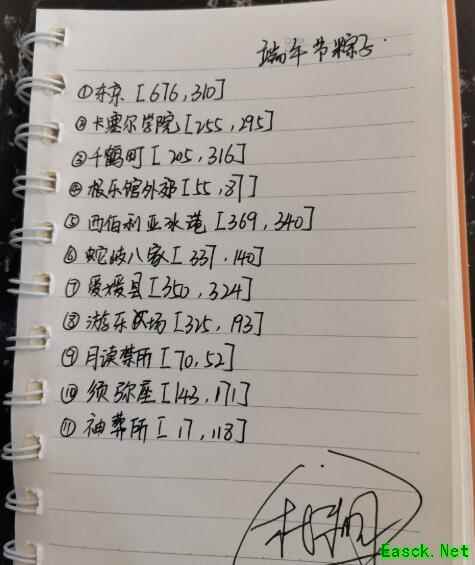 端午节粽子
①东京[676,310]
②卡塞尔学院[255,295]
③千鹤町[205,316]
④极乐馆外郊[55,87]
⑤西伯利亚冰港[369,340]
⑥蛇岐八家[337.140]
⑦爱媛县[350,324]
⑧游乐场[325,193]
⑨月读禁所[70,52]
⑩须弥座[143,171]
⑪神葬所[17,118]
Easck.Net